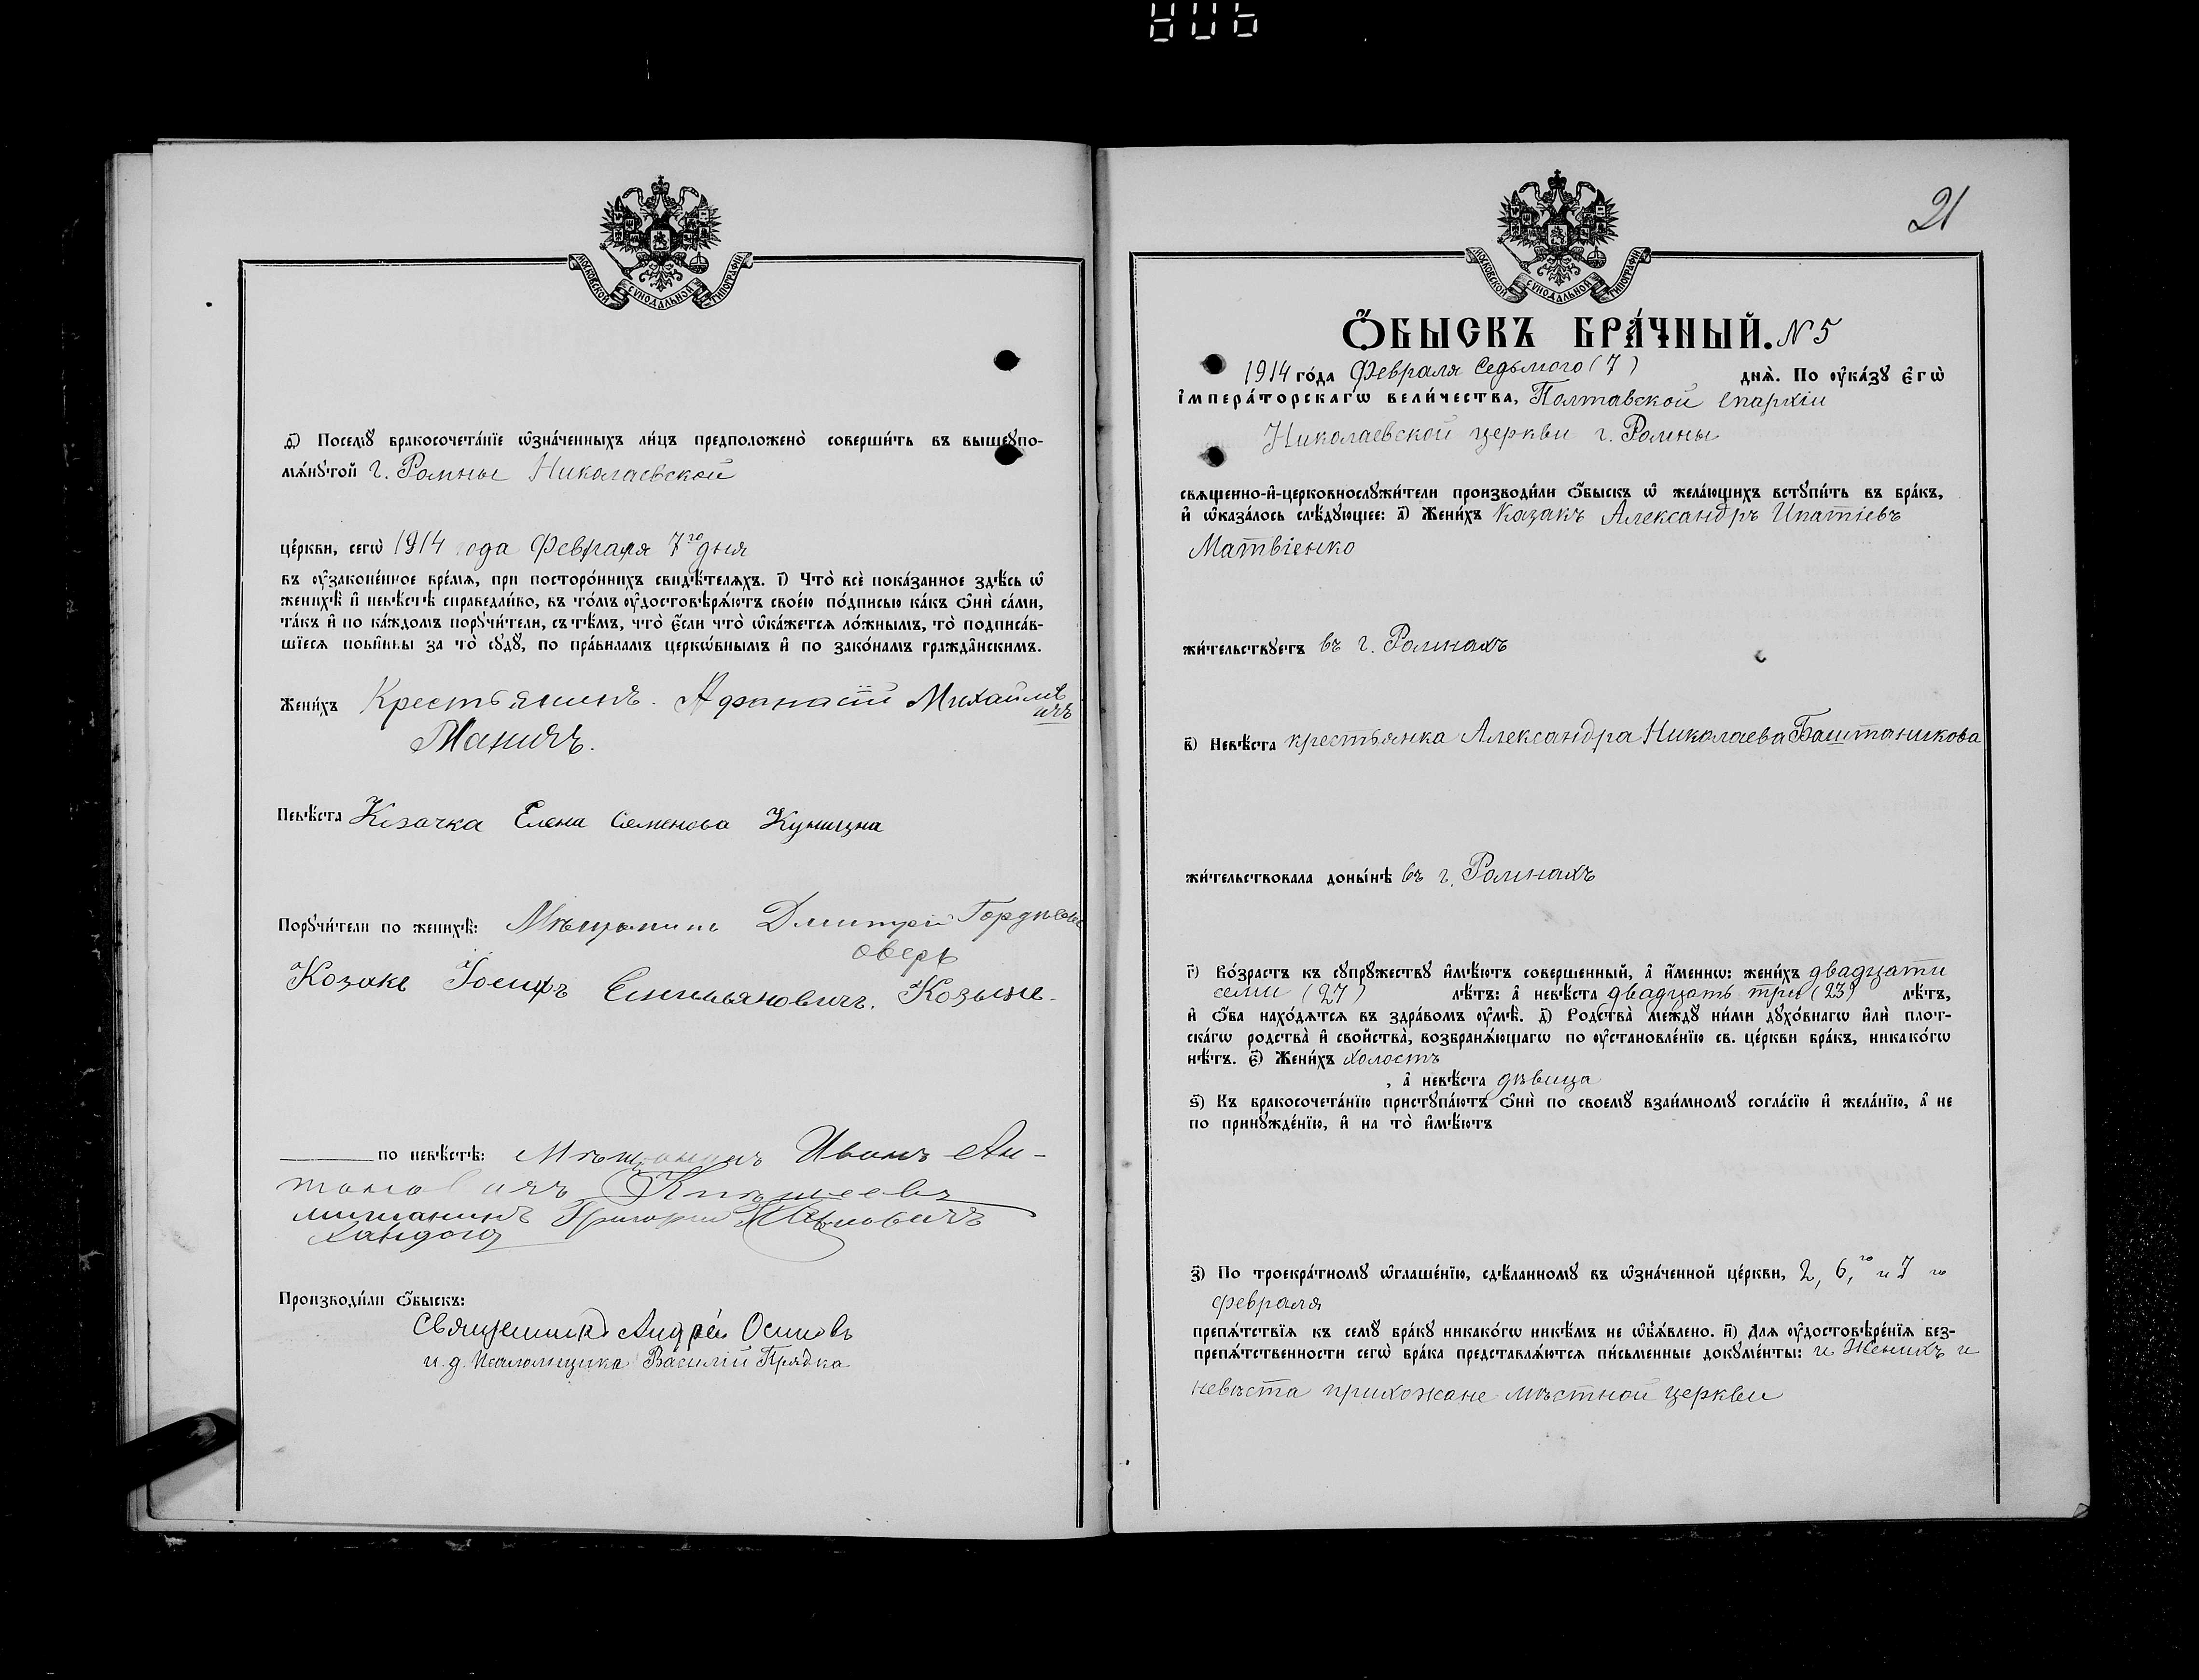 МОСКОВСКОЙ СѴНОДАЛЬНОЙ ТИПОГРАФІИ
ѳ҃) Посемꙋ̀ бракосочета́нїе ѡ҆зна́ченныхъ ли́цъ предположено̀ соверши́ть въ вышеꙋпо-
мѧ́нꙋтой г. Ромны Николаевской
це́ркви, сегѡ̀ 1914 года Февраля 7го дня
въ ᲂу҆законе́нное вре́мѧ, при посторо́ннихъ свидѣ́телѧхъ. і҃) Что̀ всѐ пока́занное здѣ́сь ѡ҆
женихѣ̀ и҆ невѣ́стѣ справедли́во, въ то́мъ ᲂу҆достовѣрѧ́ютъ свое́ю по́дписью ка́къ ѻ҆нѝ са́ми,
та́къ и҆ по ка́ждомъ порꙋчи́тели, съ тѣ́мъ, что̀ є҆́сли что̀ ѡ҆ка́жетсѧ ло́жнымъ, то̀ подписа́в-
шїесѧ пови́нны за то̀ сꙋдꙋ̀, по пра́виламъ церко́внымъ и҆ по зако́намъ гражда́нскимъ.
Жени́хъ Крестьянинъ. Афанасій Михайлов
ичъ
Маничъ.
Невѣ́ста Козачка Елена Семенова Куницна
Порꙋчи́тели по женихѣ̀: Мѣщанинъ Дмитрій
Козакъ Іосифъ Емильяновичъ.
по невѣ́стѣ: Мѣщанинъ Иванъ Ан-
тоновичъ
мищанинъ Григорий
Производи́ли ѻ҆́быскъ:
Священникъ Андрей Осиповъ
и. д. Псаломщика Василій Прядка
21
МОСКОВСКОЙ СѴНОДАЛЬНОЙ ТИПОГРАФІИ
Ѻ҆́БЫСКЪ БРА́ЧНЫЙ. N 5
1914 го́да Февраля Седьмого (7) днѧ̀. По ᲂу҆ка́зꙋ є҆гѡ̀
і҆мпера́торскагѡ вели́чества, Полтавской Епархіи
Николаевской церкви г. Ромны
свѧщенно-и҆-церковнослꙋжи́тели производи́ли ѻ҆́быскъ ѡ҆ жела́ющихъ встꙋпи́ть въ бра́къ,
и҆ ѡ҆каза́лось слѣ́дꙋющее: а҃) Жени́хъ Казакъ Александръ Ипатіевъ
Матвіенко
жи́тельствꙋетъ въ г. Ромнахъ
в҃) Невѣ́ста крестьянка Александра Николаева Баштаникова
жи́тельствовала доны́нѣ въ г. Ромнахъ
г҃) Во́зрастъ къ сꙋпрꙋ́жествꙋ и҆мѣ́ютъ соверше́нный, а҆ и҆́меннѡ: жени́хъ двадцати
семи (27) лѣ́тъ: а҆ невѣ́ста двадцать три (23) лѣ́тъ,
и҆ ѻ҆́ба нахо́дѧтсѧ въ здра́вомъ ᲂу҆мѣ̀. д҃) Родства̀ междꙋ̀ ни́ми дꙋхо́внагѡ и҆лѝ плот-
ска́гѡ родства̀ и҆ сво́йства̀, возбранѧ́ющагѡ по ᲂу҆становле́нїю св. це́ркви бра́къ, никако́гѡ
нѣ́тъ. є҃) Жени́хъ холостъ
, а҆ невѣ́ста дѣвица
ѕ҃) Къ бракосочета́нїю пристꙋпа́ютъ ѻ҆нѝ по своемꙋ̀ взаи́мномꙋ согла́сїю и҆ жела́нїю, а҆ не
по принꙋжде́нїю, и҆ на то̀ и҆мѣ́ютъ
з҃) По троекра́тномꙋ ѡ҆глаше́нїю, сдѣ́ланномꙋ въ ѡ҆зна́ченной це́ркви, 2, 6,го и 7 го
февраля
препѧ́тствїѧ къ семꙋ̀ бра́кꙋ никако́гѡ никѣ́мъ не ѡ҆б̾ѧ́влено. и҃) Длѧ ᲂу҆достовѣре́нїѧ без-
препѧ́тственности сегѡ̀ бра́ка представлѧ́ютсѧ пи́сьменные докꙋме́нты: и Женихъ и
невѣста прихожане мѣстной церкви